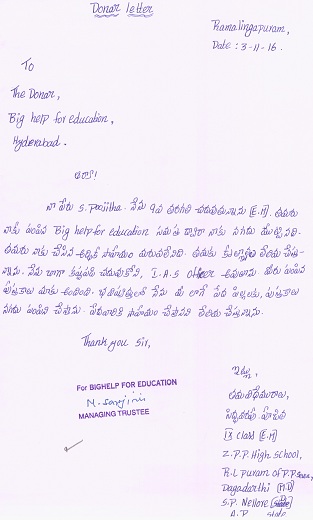 Donar letter
Ramalingapuram,
Date : 3-11-16.
To
The Donar,
Big help for education,
Hyderabad.
సార్!
నా పేరు S. Poojitha. నేను 9వ తరగతి చదువుతున్నాను [E.M]. తమరు
నాకు పంపిన Big help for education ద్వారా నాకు నగదు ముట్టినది.
తమరు నాకు చేసిన ఆర్థిక సహాయం మరువలేనిది. తమకు కృతజ్ఞతలు తెలియ చేస్తు-
న్నాను. నేను బాగా కష్టపడి చదువుకొని, I.A.S officer అవుతాను. మీరు పంపిన
పుస్తకాలు మాకు అందినవి. భవిష్యత్తులో నేను మీ లాగే పేద పిల్లలకు, పుస్తకాలు
నగదు పంపిణి చేస్తాను. పేదవారికి సహాయం చేస్తానని తెలియ చేస్తున్నాను.
Thank you Sir,
For BIGHELP FOR EDUCATION
MANAGING TRUSTEE
ఇట్లు,
తమ విధేయురాలు,
పూజిత
IX class [E.M]
Z.P.P. High School,
R.L puram of P.P
Dagadarthi [M.D]
S.P. Nellore
A.P state